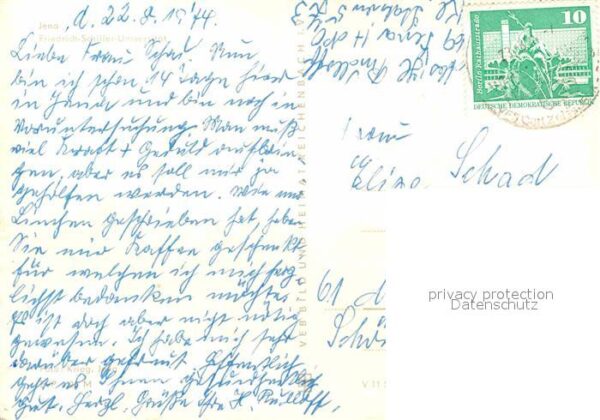 d. 22.8.1974.
Jena
Friedrich-Schiller-Universität
Liebe Frau Schad Nun
bin ich schon 14 Tage hier
in Jena und bin noch in
Voruntersuchung. Man muß
viel Kraft + Geduld aufbrin-
gen, aber es soll mir ja
geholfen werden. Wie mir
Linchen geschrieben hat, haben
Sie mir Kaffee geschenkt
für welchen ich mich herz
lichst bedanken möchte.
Es ist doch aber nicht nötig
gewesen. Ich habe mich sehr
darüber gefreut. Hoffentlich
geht es Ihnen gesundheitlich
gut. Herzl. Grüße Ihre H.
VEB BILD UND HEIMAT REICHENBACH I. V.
V 11
10
Berlin, Rathausstraße
DEUTSCHE DEMOKRATISCHE REPUBLIK
Frau
Schad
61
privacy protection
Datenschutz